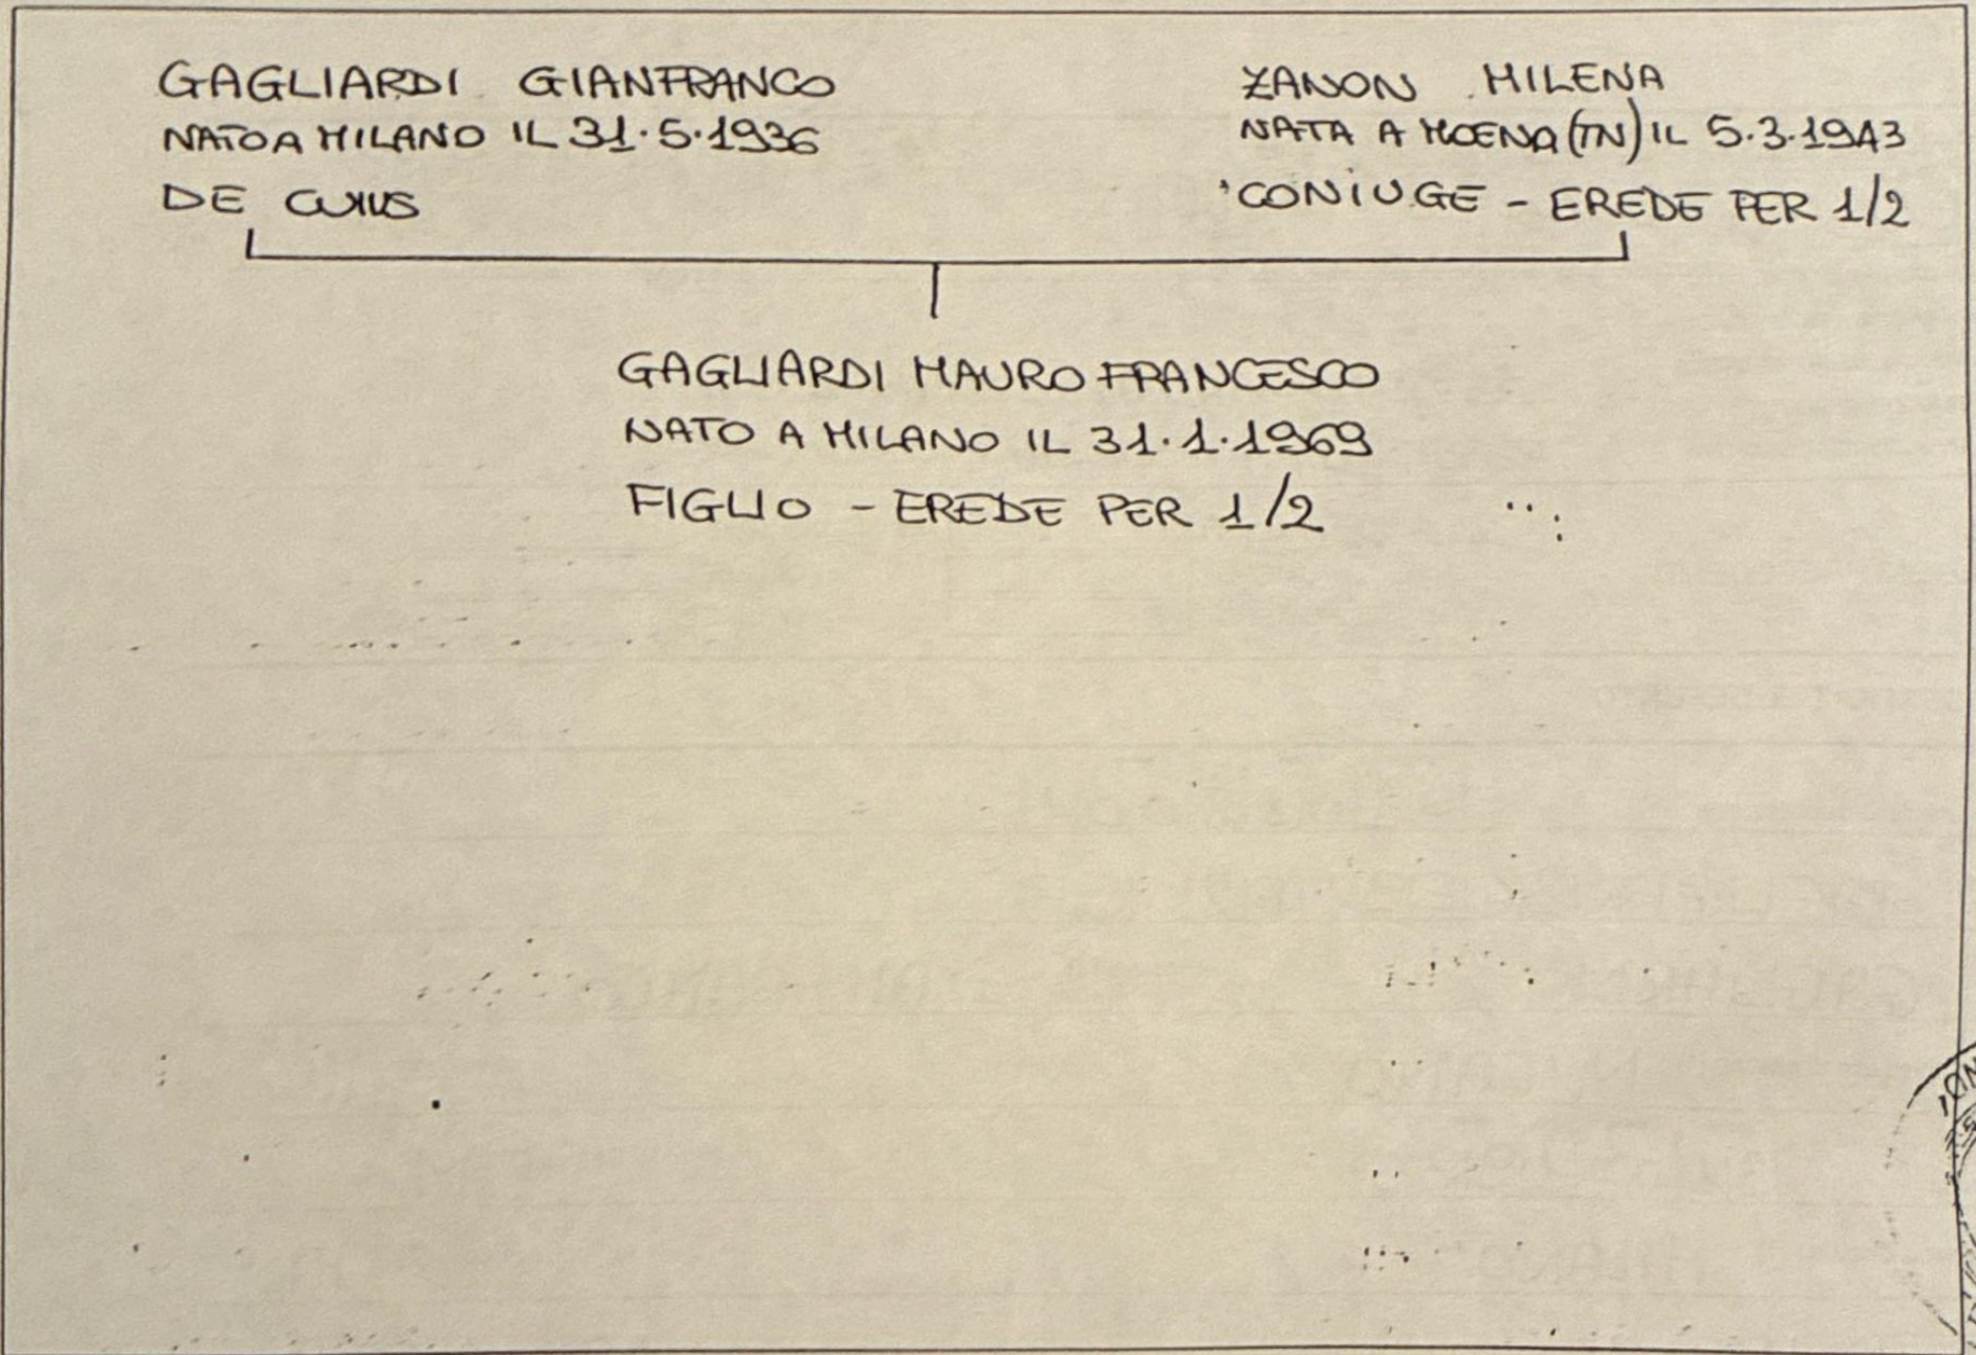 GAGLIARDI GIANFRANCO
NATO A MILANO IL 31.5.1936
DE CUIUS
ZANON MILENA
NATA A MOENA (TN) IL 5.3.1943
CONIUGE - EREDE PER 1/2
GAGLIARDI MAURO FRANCESCO
NATO A MILANO IL 31.1.1969
FIGLIO - EREDE PER 1/2